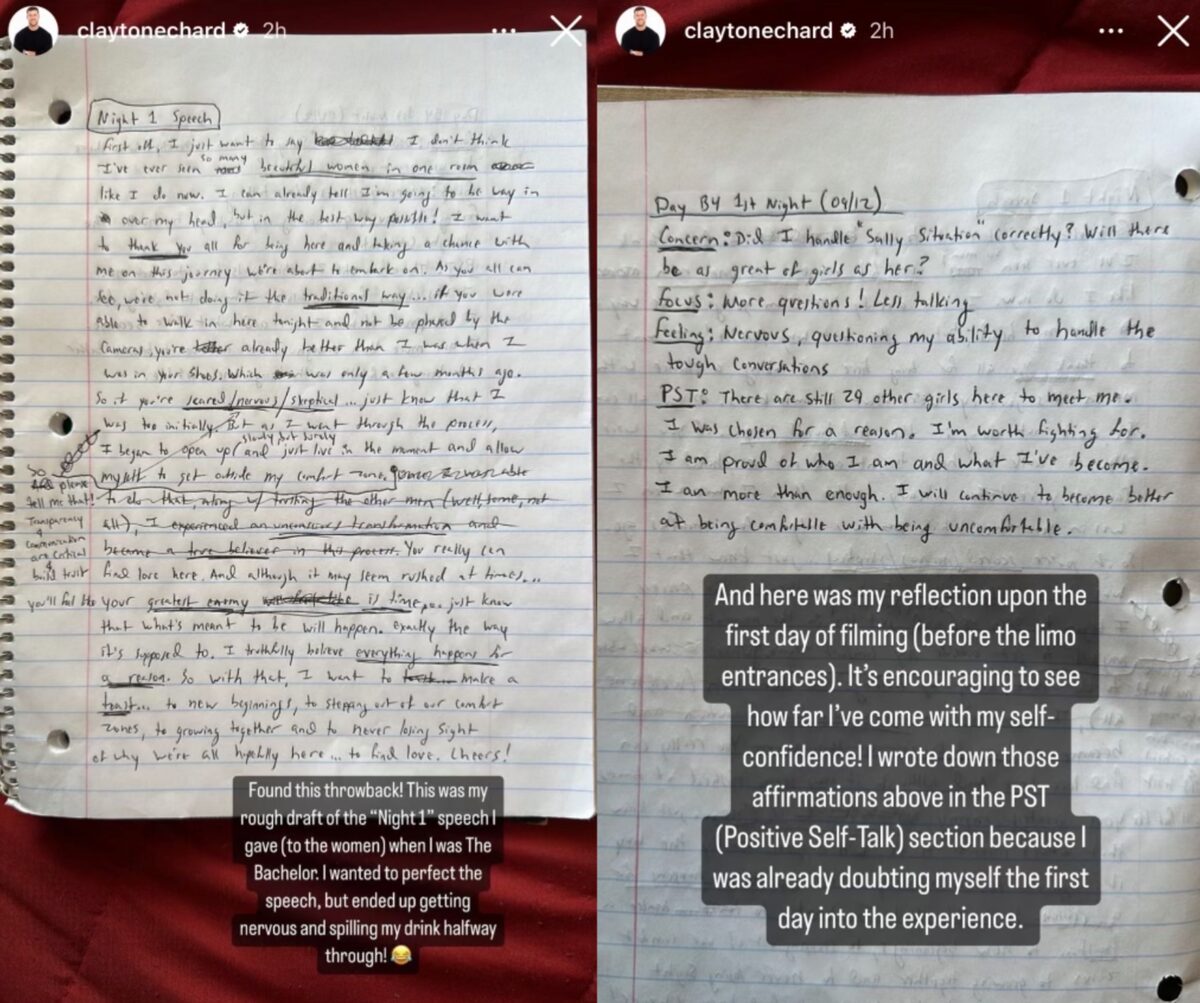 claytonechard 2h
Night 1 Speech
First off, I just want to say I don't think
I've ever seen so many beautiful women in one room
like I do now. I can already tell I'm going to be way in
over my head, but in the best way possible! I want
to thank you all for being here and taking a chance with
me on this journey we're about to embark on. As you all can
see, we're not doing it the traditional way... if you were
able to walk in here tonight and not be phased by the
cameras, you're already better than I was when I
was in your shoes. Which was only a few months ago.
So if you're scared/nervous/skeptical... just know that I
was too initially. But as I went through the process,
I began to open up (slowly but surely) and just live in the moment and allow
myself to get outside my comfort zone. was able
to do that, along w/ trusting the other men (well, some, not
all), I experienced an transformation and
became a true believer in this process. You really can
find love here. And although it may seem rushed at times...
you'll feel like your greatest enemy is time... just know
that what's meant to be will happen. exactly the way
it's supposed to. I truthfully believe everything happens for
a reason. So with that, I want to make a
toast... to new beginnings, to stepping out of our comfort
zones, to growing together and to never losing sight
of why we're all hopefully here... to find love. Cheers!
So
please
tell me that!
Transparency
&
communication
are critical
&
build trust
Found this throwback! This was my
rough draft of the “Night 1” speech I
gave (to the women) when I was The
Bachelor. I wanted to perfect the
speech, but ended up getting
nervous and spilling my drink halfway
through! 😂
claytonechard 2h
Day B4 1st Night (09/12)
Concern: Did I handle "Sally Situation" correctly? Will there
be as great of girls as her?
Focus: More questions! Less talking
Feeling: Nervous, questioning my ability to handle the
tough conversations
PST: There are still 29 other girls here to meet me.
I was chosen for a reason. I'm worth fighting for.
I am proud of who I am and what I've become.
I am more than enough. I will continue to become better
at being comfortable with being uncomfortable.
And here was my reflection upon the
first day of filming (before the limo
entrances). It’s encouraging to see
how far I’ve come with my self-
confidence! I wrote down those
affirmations above in the PST
(Positive Self-Talk) section because I
was already doubting myself the first
day into the experience.